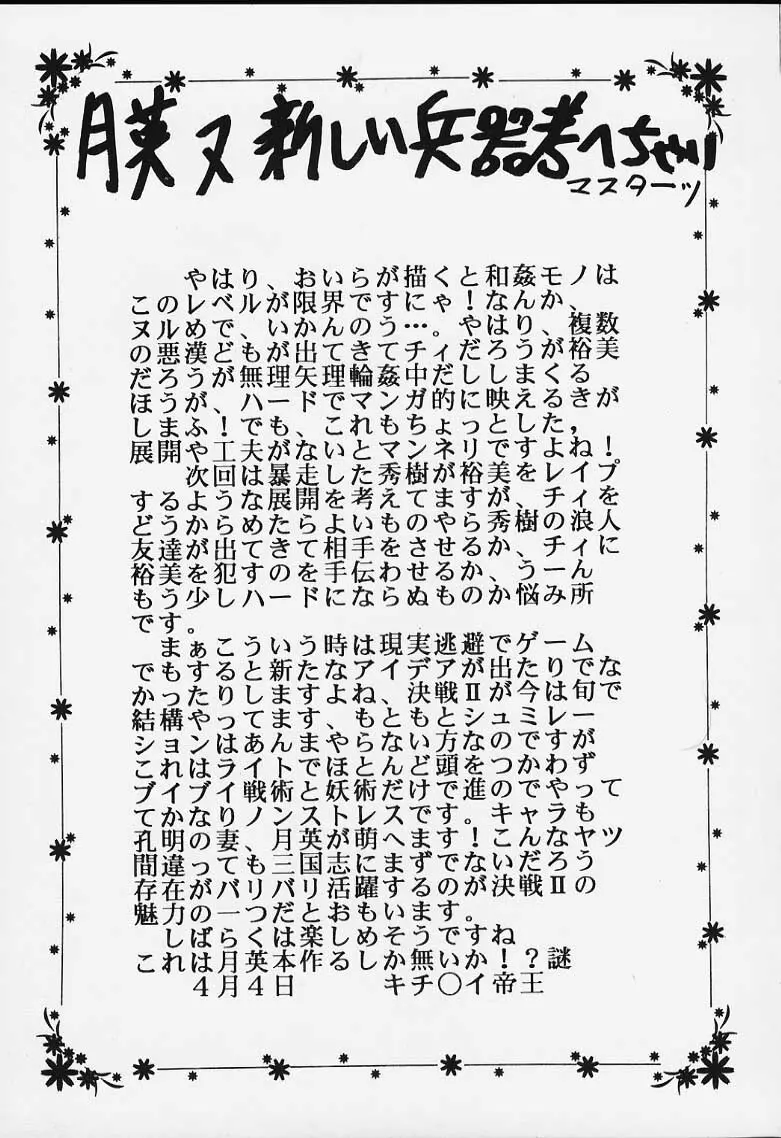 月英ヌ新しい兵器考へちゃい
マスターツ
やはり、おいらが描くと和姦モノは
このレベルが限界ですにゃ！なんか、
ヌルめで、いかんのう…。やはり、複数
の悪漢どもが出てきてチィだろうが裕美
だろうが無理矢理輪姦中だしまくる
ほうが、ハードでマンガ的に映えるきが
しまふ！でも、これもちょっとした，
展開や工夫がないとマンネリですよね！
次回は暴走した秀樹が裕美をレイプ
するような展開を考えてますが、チィを
どうからめたらよいものやら秀樹の浪人
友達が出てきて相手をさせるか、チィに
裕美を犯すのを手伝わせるか、うーん
もう少しハードにならぬものか悩み所
です。
まぁこういう時は現実逃避でゲーム
でもすると新たなアイデアが出たりで な
かったりしますよね、決戦Ⅱが今は旬で
結構やってます、もともとシュミレー
ションはあんまやらない方なのですが
これはライトでほとんど頭をつかわず
ブイブイ戦術と妖術だけで進のでやって
てかなりノンストレスです。キャラも
孔明の妻、月英が萌へます！こんなヤツ
間違っても三国志にまずでないだろう
存在がバリバリ活躍するのが決戦Ⅱの
魅力の一つだとおもいます。
しばらくは楽しめそうですね
これは月英本作るしか無いか！？謎
4月4日　キチ〇イ帝王